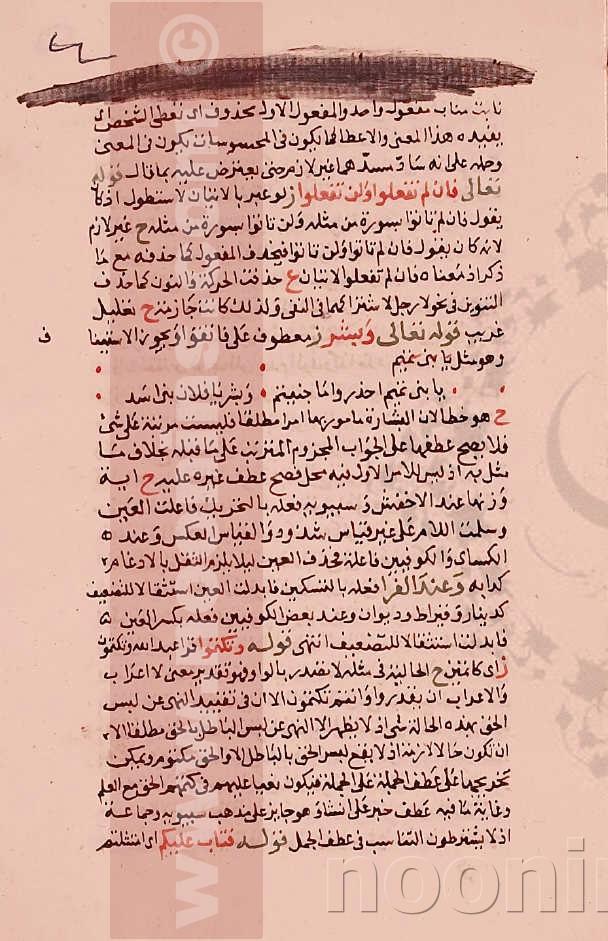 نابت مناب مفعول واحد والمفعول الاول محذوف اى نعطى الشخص
يفيده هذا المعنى والاعطا كما يكون فى المحسوسات يكون فى المعنى
وحمله على انه سادّ مسدّهما غير لازم حتى يعترض عليه بما قال قوله
تعالى فان لم تفعلوا ولن تفعلوا ز لو عبر بالاتيان لاستطول اذ كا
يقول فان لم تاتوا بسورة من مثله ولن تاتوا بسورة من مثله ح غير لازم
لانه كان يقول فان لم تاتوا ولن تاتوا فيحذف المفعول كما حذفه مع ما
ذكر اذ معناه فان لم تفعلوا الاتيان ع حذفت الحركة والنون كما حذف
التنوين فى نحو لا رجل لاشتراكهما فى النفى ولذلك كانتا جازمتين ح تعليل
غريب قوله تعالى وبشر ز معطوف على فاتقوا ويجوز الاستينا
ف
وهو مثل يا بنى تميم
يا بنى تميم احذروا ما جنيتم وبشر يا فلان بنى اسد
ح هو خطا لان البشارة مامور بها امرا مطلقا فليست مرتبة على شئ
فلا يصح عطفها على الجواب المجزوم المترتب على ما قبله بخلاف ما
مثل به اذ ليس للامر الاول فيه محل فصح عطف غيره عليه ح اية
وزنها عند الاخفش وسيبويه فعله بالتحريك فاعلت العين
وسلمت اللام على غير قياس شذوذ والقياس العكس وعند
الكساى والكوفيين فاعلة فحذف العين ليلا يلزم الثقل بالادغام
كدابه وعند الفرا فعله بالتسكين فابدلت العين استثقالا للتضعيف
كدينار وقيراط وديوان وعند بعض الكوفيين فعله بكسر العين
فابدلت استثقالا للتضعيف انتهى قوله وتكتموا قرا عبد الله وتكتمون
ز اى كاتمين ح الحالية فى مثله لا تصدر بالواو فهو تقدير معنى لا اعراب
والاعراب ان يقدروا وانتم تكتمون الا ان فى تقييد النهى عن لبس
الحق بهذه الحالة شئ اذ لا يظهر الا النهى عن لبس الباطل بالحق مطلقا الا
ان تكون حالا لازمة اذ لا يقع لبس الحق بالباطل الا والحق مكتوم ويمكن
تخريجها على عطف الجملة على الجملة فيكون نعيا عليهم فى كتمهم الحق مع العلم
وغاية ما فيه عطف خبر على انشا وهو جايز على مذهب سيبويه وجماعة
اذ لا يشترطون التناسب فى عطف الجمل قوله فتاب عليكم اى امتثلتم
noorin